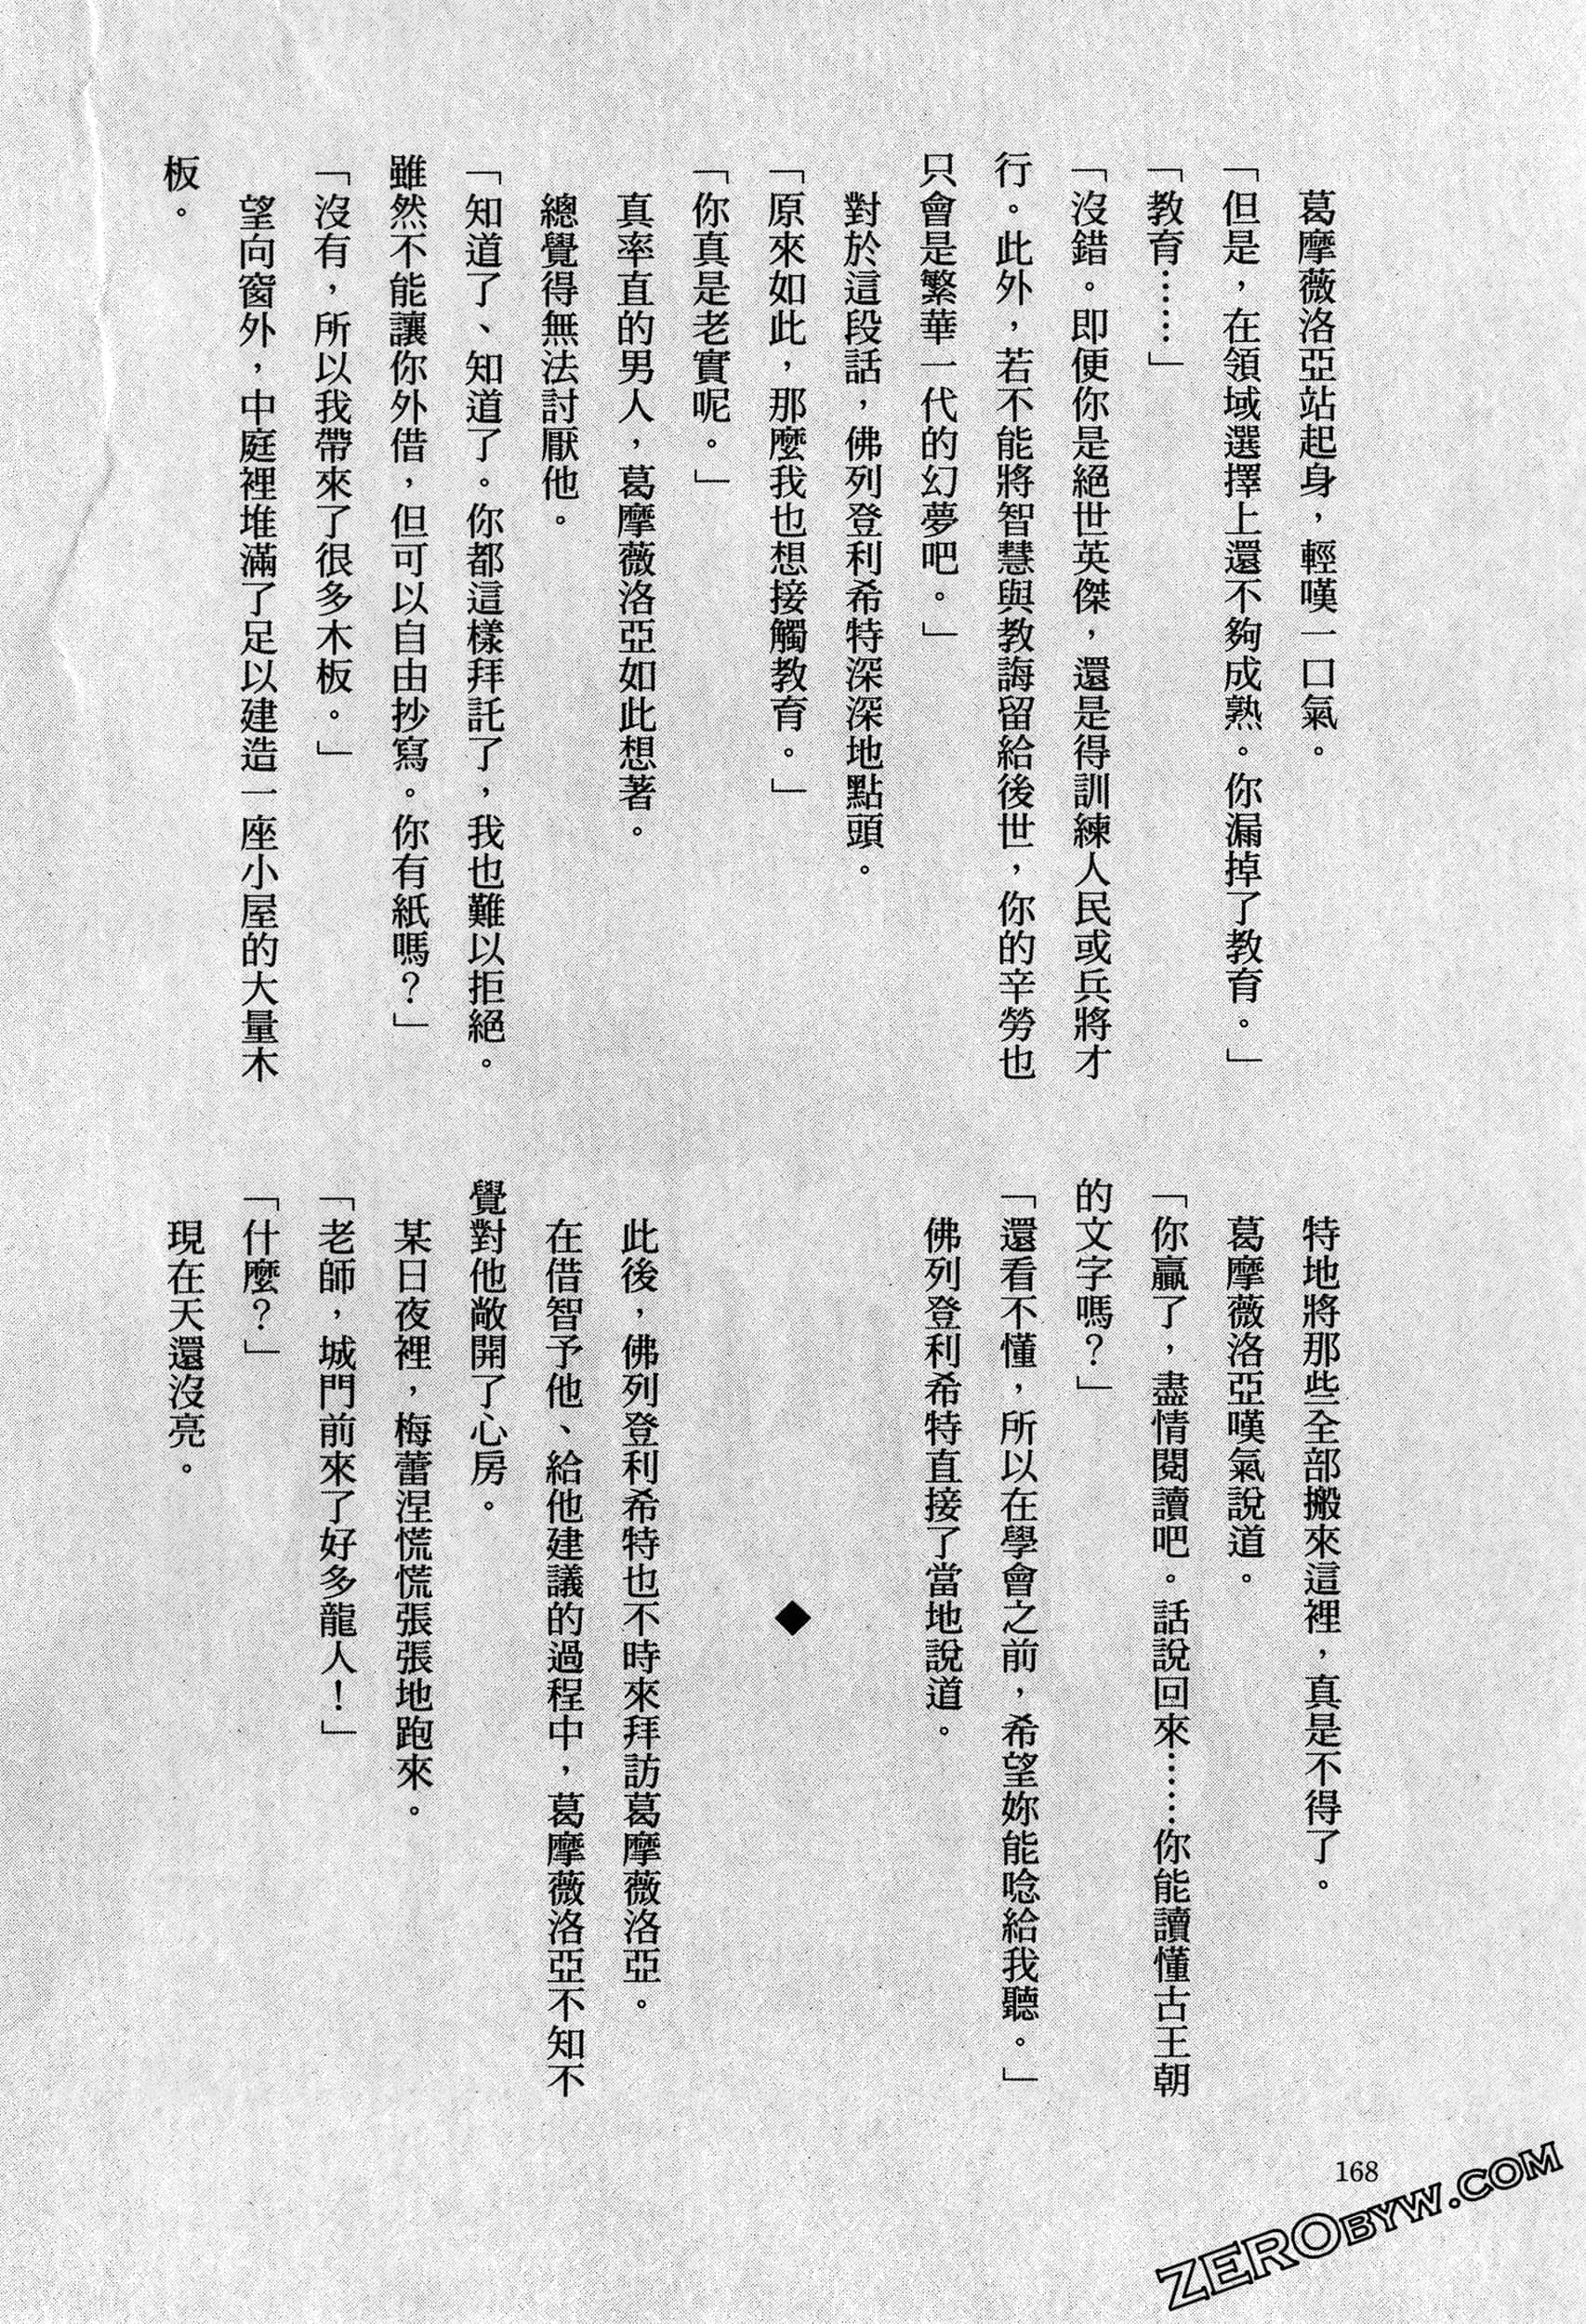 葛摩薇洛亞站起身，輕嘆一口氣。
「但是，在領域選擇上還不夠成熟。你漏掉了教育。」
「教育……」
「沒錯。即便你是絕世英傑，還是得訓練人民或兵將才
行。此外，若不能將智慧與教誨留給後世，你的辛勞也
只會是繁華一代的幻夢吧。」
對於這段話，佛列登利希特深深地點頭。
「原來如此，那麼我也想接觸教育。」
「你真是老實呢。」
真率直的男人，葛摩薇洛亞如此想著。
總覺得無法討厭他。
「知道了、知道了。你都這樣拜託了，我也難以拒絕。
雖然不能讓你外借，但可以自由抄寫。你有紙嗎？」
「沒有，所以我帶來了很多木板。」
望向窗外，中庭裡堆滿了足以建造一座小屋的大量木
板。
特地將那些全部搬來這裡，真是不得了。
葛摩薇洛亞嘆氣說道。
「你贏了，盡情閱讀吧。話說回來……你能讀懂古王朝
的文字嗎？」
「還看不懂，所以在學會之前，希望妳能唸給我聽。」
佛列登利希特直接了當地說道。
◆
此後，佛列登利希特也不時來拜訪葛摩薇洛亞。
在借智予他、給他建議的過程中，葛摩薇洛亞不知不
覺對他敞開了心房。
某日夜裡，梅蕾涅慌慌張張地跑來。
「老師，城門前來了好多龍人！」
「什麼？」
現在天還沒亮。
168
ZEROBYW.COM